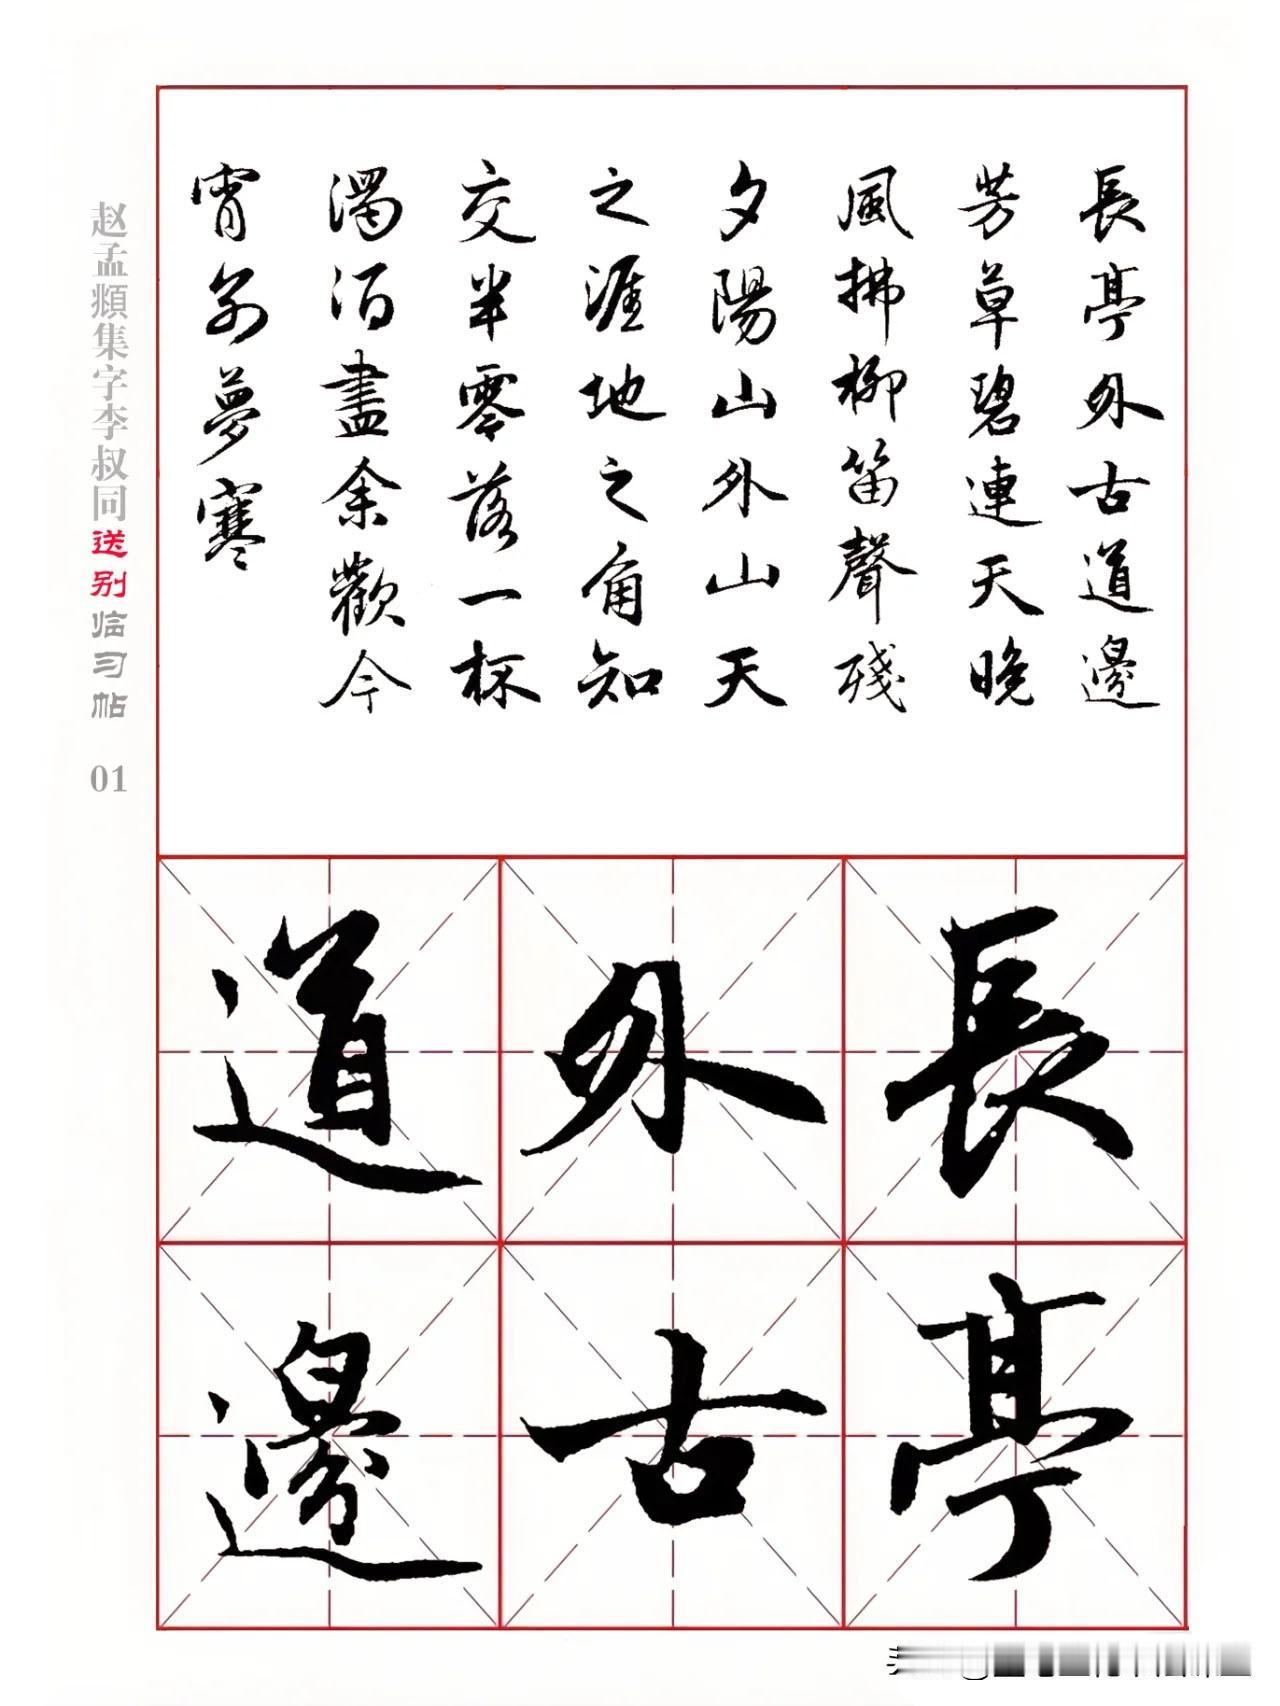 長亭外古道邊
芳草碧連天晚
風拂柳笛聲殘
夕陽山外山天
之涯地之角知
交半零落一杯
濁酒盡余歡今
宵別夢寒
赵孟頫集字李叔同送别临习帖 01
長
亭
外
古
道
邊